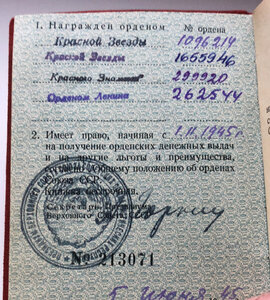 1. Награжден орденом № ордена
Красной Звезды 1096219
Красной Звезды 1655946
Красного Знамени 299920
Орденом Ленина 262544
2. Имеет право, начиная с 1.II.1945г
на получение орденских денежных выдач
и на другие льготы и преимущества,
согласно общему положению об орденах
Союза ССР.
Секретарь Президиума
Верховного Совета
№ 213071